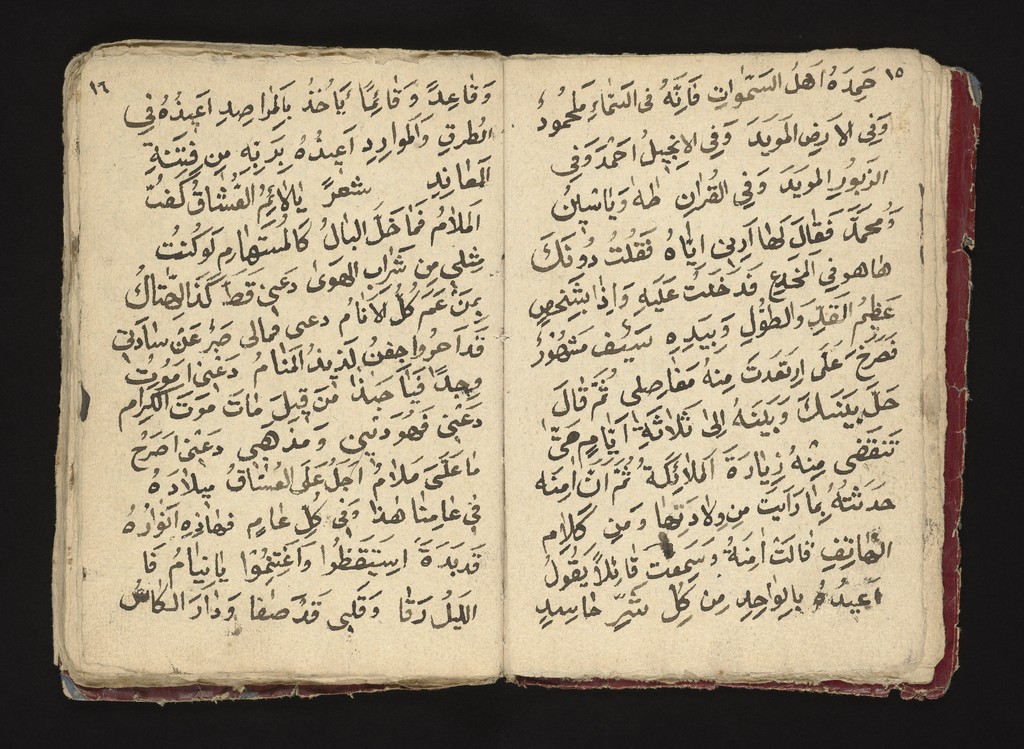 ١٥
حَمِدَهُ اَهلُ السَّمٰواتِ فَاِنَّه فى السَّمٰاءِ مَلحمُودٌ
وَفى الارضِ المؤيَد وَفى الانجيل اَحمَد وَفى
الزبُورِ المويَد وَفى القُرانِ طٰهٰ وَياسين
وَمُحمدً فَقالَ لَهٰا اَرِنى اِيّاهُ فَقُلتُ دُونَكَ
هٰاهو فى المخدَعِ قَد دَخَلتُ عَلَيهِ وَاِذٰا بشَخصٍ
عَظيمُ القدِّ وَالطوُلِ وَبِيَدِهِ سَيف مَشهوُرٌ
فَصَرخَ عَلَى اِرتَعَدتَ مِنهُ مَفٰاصِلى ثُمَّ قٰالَ
حَلَّ بَينَكَ وَبَينَهُ اِلىٰ ثَلاثَةِ اَيّٰامٍ حَتّىٰ
تَنقَضى مِنهُ زِيٰارَةَ اَلملائكة ثُمَّ اَنَ اٰمِنَه
حَدثَتهُ بِمٰا رَاَيتَ مِن وِلادَتِهٰا وَمِن كَلامِ
الهٰاتِفِ قٰالَتَ اٰمِنَةُ وَسَمِعتَ قٰائِلاً يَقُولُ
اُعِيذُهُ بالوٰاحِدِ مِن كُلِ شَرِّ حٰاسِدٍ
١٦
وَقٰاعِداً وَقٰائِمًا يَاخُذُ بالمَراصِدِ اُعيذُهُ فى
الطُرقِ وَالمَوارِدِ اُعيذُهُ بِرَبّهِ مِن فِتنَةِ
المعٰانِد شعرً يالائِمُ العُشاقُ كفتُ
اَلمَلامُ فَمٰا خَلَ البالُ كَالمُستَهٰامِ لَوكُنتُ
مِثلى مِن شَرَابِ الهَوىٰ دَعنى قَط كَذَا
بمَن عَمَ كُلُ الاَنامُ دعنى فمالى صَبرُ عَن سٰادَتى
قَد جفنُ لَذيذُ المَنامُ دَعنى اَموُت
وَجداً فَيٰا حَبذا مَن قَبلَ مٰاتَ مَوتَ الكِرام
دَعنى فَهُوَ دينى وَمذهَبى دَعنى اَصرَحُ
مٰا عَلَىَ مَلامُ اَجَلُ عَلى العُشاقُ مِيلادَهُ
فى عٰامِنٰا هٰذا وَفى كُلِ عٰامٍ فهٰاذِهِ اَنوارُهُ
قَد بَدَةَ اِستَيقَظُوا وَاغتَنِمُوا يٰانيٰامُ فَا
اللَيلُ رَقا وَقَلبى قَد صَفا وَدٰارَ الكٰاسُ